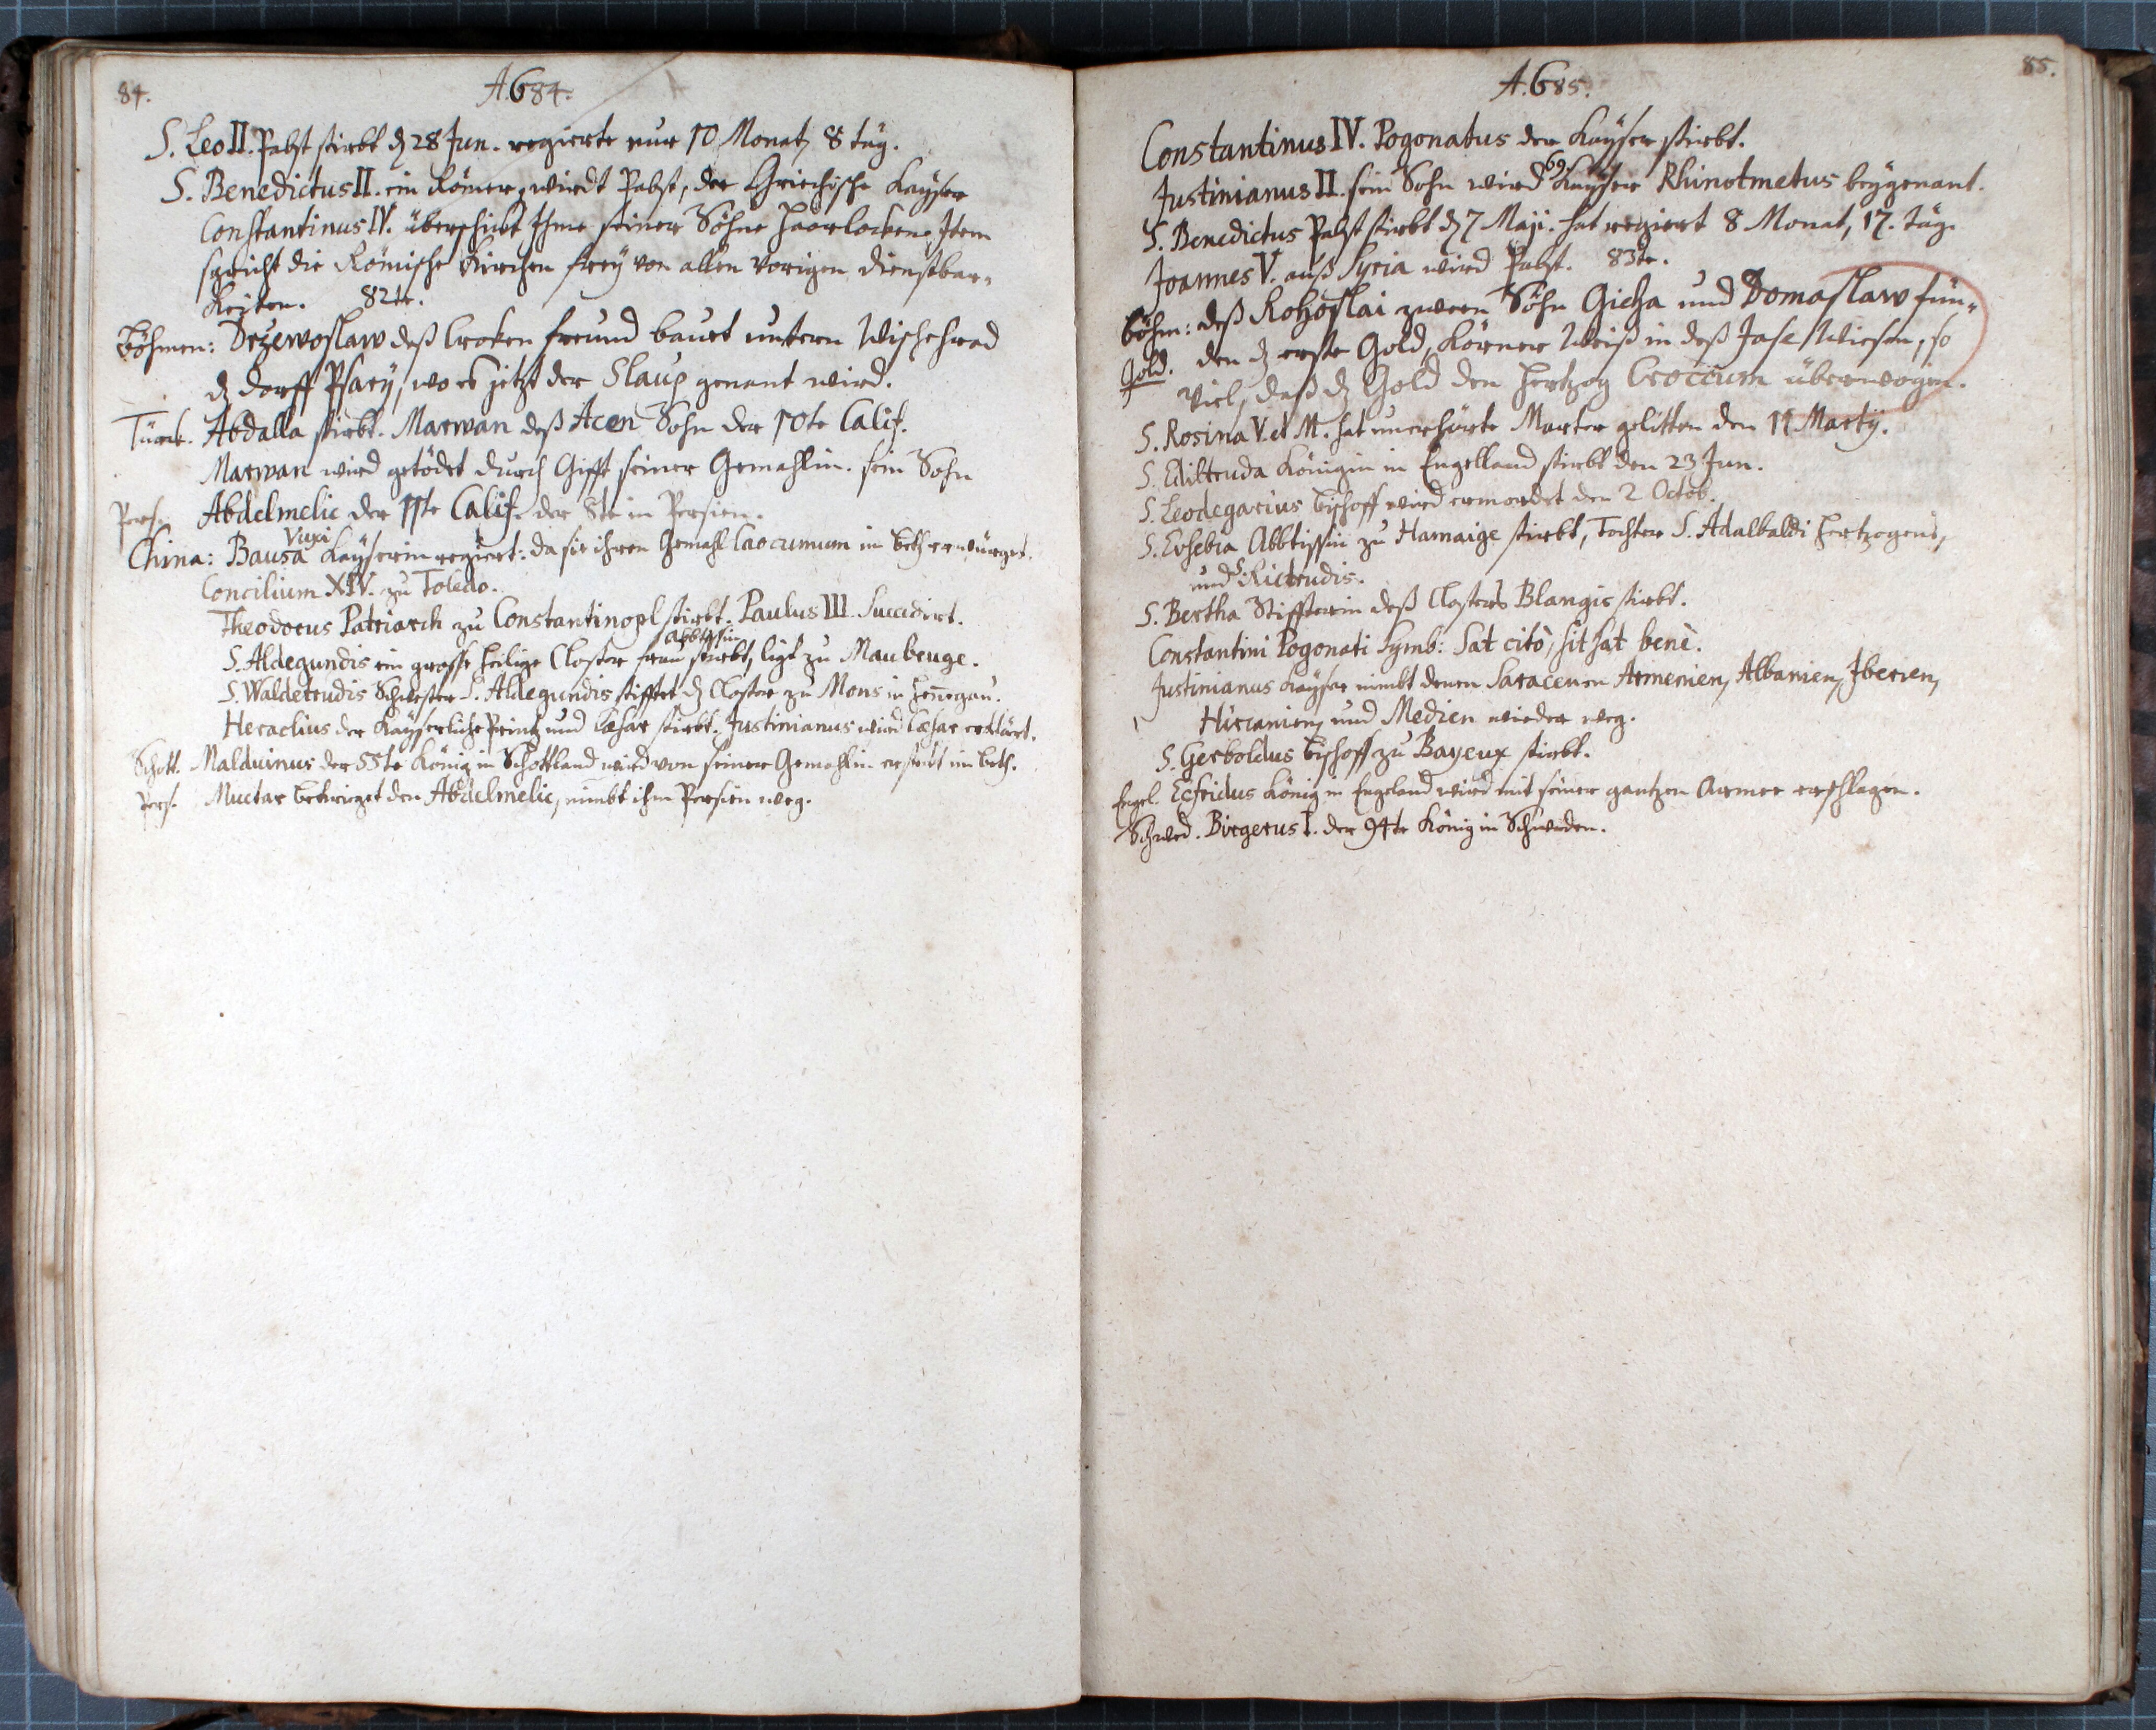 84.
A. 684.
S. Leo II. Pabst stirbt dz 28 Jun. regierte nur 10 Monat, 8 täg.
S. Benedictus II. ein Römer, wirdt Pabst, der Griechische Kayser
Constantinus IV. überschickt Ihme seiner Söhne Haarlocken, Item
spricht die Römische Kirchen frey von allen vorigen dienstbar-
keiten. 82te.
Böhmen: Drzewoslaw deß Crocken freund bauet untern Wischehrad
dz dorff Psary, wo es jetzt der Slaup genant wird.
Türck. Abdalla stirbt. Marwan deß Acen Sohn der 10te Calif.
Marwan wird getödet durch Gifft seiner Gemahlin. sein Sohn
Pers. Abdelmelic der 11te Calif. der 8te in Persien.
Vuxi
China: Bausa Kayserin regiert: da sie ihren Gemahl Caocumum im beth erwürget.
Concilium XIV. zu Toledo.
Theodorus Patriarch zu Constantinopl stirbt. Paulus III. Succedirt.
Abbtissin
S. Aldegundis ein grosse heilige Closter frau stirbt, ligt zu Maubeuge.
S. Waldetrudis Schwester S. Aldegundis stifftet dz Closter zu Mons in Hennegau.
Heraclius der Kayserliche Printz und Cæsar stirbt. Justinianus wird Cæsar erklärt.
Schott. Malduinus der 55te König in Schottland wird von seiner Gemahlin erstickt im beth.
Pers. Muctar bekrieget den Abdelmelic, nimbt ihm Persien weg.
85.
A. 685.
Constantinus IV. Pogonatus der Kayser stirbt.
69
Justinianus II. sein Sohn wird Kayser Rhinotmetus beygenant.
S. Benedictus Pabst stirbt dz 7 Maji. hat regiert 8 Monat, 17. täg.
Joannes V. auß Syria wird Pabst. 83te.
Böhm: deß Rohoslai zween Söhn Gicha und Domaslaw fün-
Gold. den dz erste Gold, Körner Weiß in deß Jase Wiesen, so
viel, daß dz Gold den Hertzog Croccum überwogen.
S. Rosina V. et M. hat unerhörte Marter gelitten den 11 Marty.
S. Ediltruda Königin in Engelland stirbt den 23 Jun.
S. Leodegarius bischoff wird ermordet den 2 Octob.
S. Eusebia Abbtissin zu Hamaige stirbt, Tochter S. Adalbaldi Hertzogens,
und S. Rictrudis.
S. Bertha Stiffterin deß Closters Blangis stirbt.
Constantini Pogonati Symb: Sat citò, sit sat benè.
Justinianus Kayser nimbt denen Saracenen Armenien, Albanien, Iberien,
Hircanien, und Medien wieder weg.
S. Gerboldus bischoff zu Bayeux stirbt.
Engel. Ecfridus König in Engeland wird mit seiner gantzen Armee erschlagen.
Schwed. Birgerus I. der 94te König in Schweden.